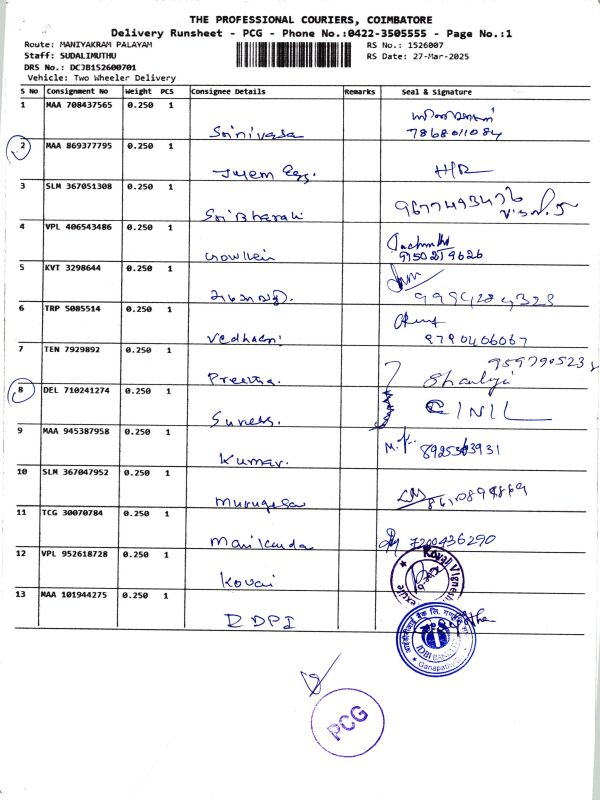 THE PROFESSIONAL COURIERS, COIMBATORE
Delivery Runsheet - PCG - Phone No.:0422-3505555 - Page No.:1
Route: MANIYAKRAM PALAYAM RS No.: 1526007
Staff: SUDALIMUTHU RS Date: 27-Mar-2025
DRS No.: DCJB152600701
Vehicle: Two Wheeler Delivery
S No Consignment No Weight PCS Consignee Details Remarks Seal & Signature
1 MAA 708437565 0.250 1 Srinivasa 7868011084
2 MAA 869377795 0.250 1 HR
3 SLM 367051308 0.250 1 Sri Bharali
4 VPL 406543486 0.250 1 9750219626
5 KVT 3298644 0.250 1
6 TRP 5085514 0.250 1 Vedhaeni 9790406067
7 TEN 7929892 0.250 1 Preetha.
8 DEL 710241274 0.250 1 Suresh. CINIL
9 MAA 945387958 0.250 1 Kumar.
10 SLM 367047952 0.250 1 Murugesa
11 TCG 30070784 0.250 1 Manikanda 7200436290
12 VPL 952618728 0.250 1 Kovai Kovai Vignesh
13 MAA 101944275 0.250 1 IDBI BANK
PCG